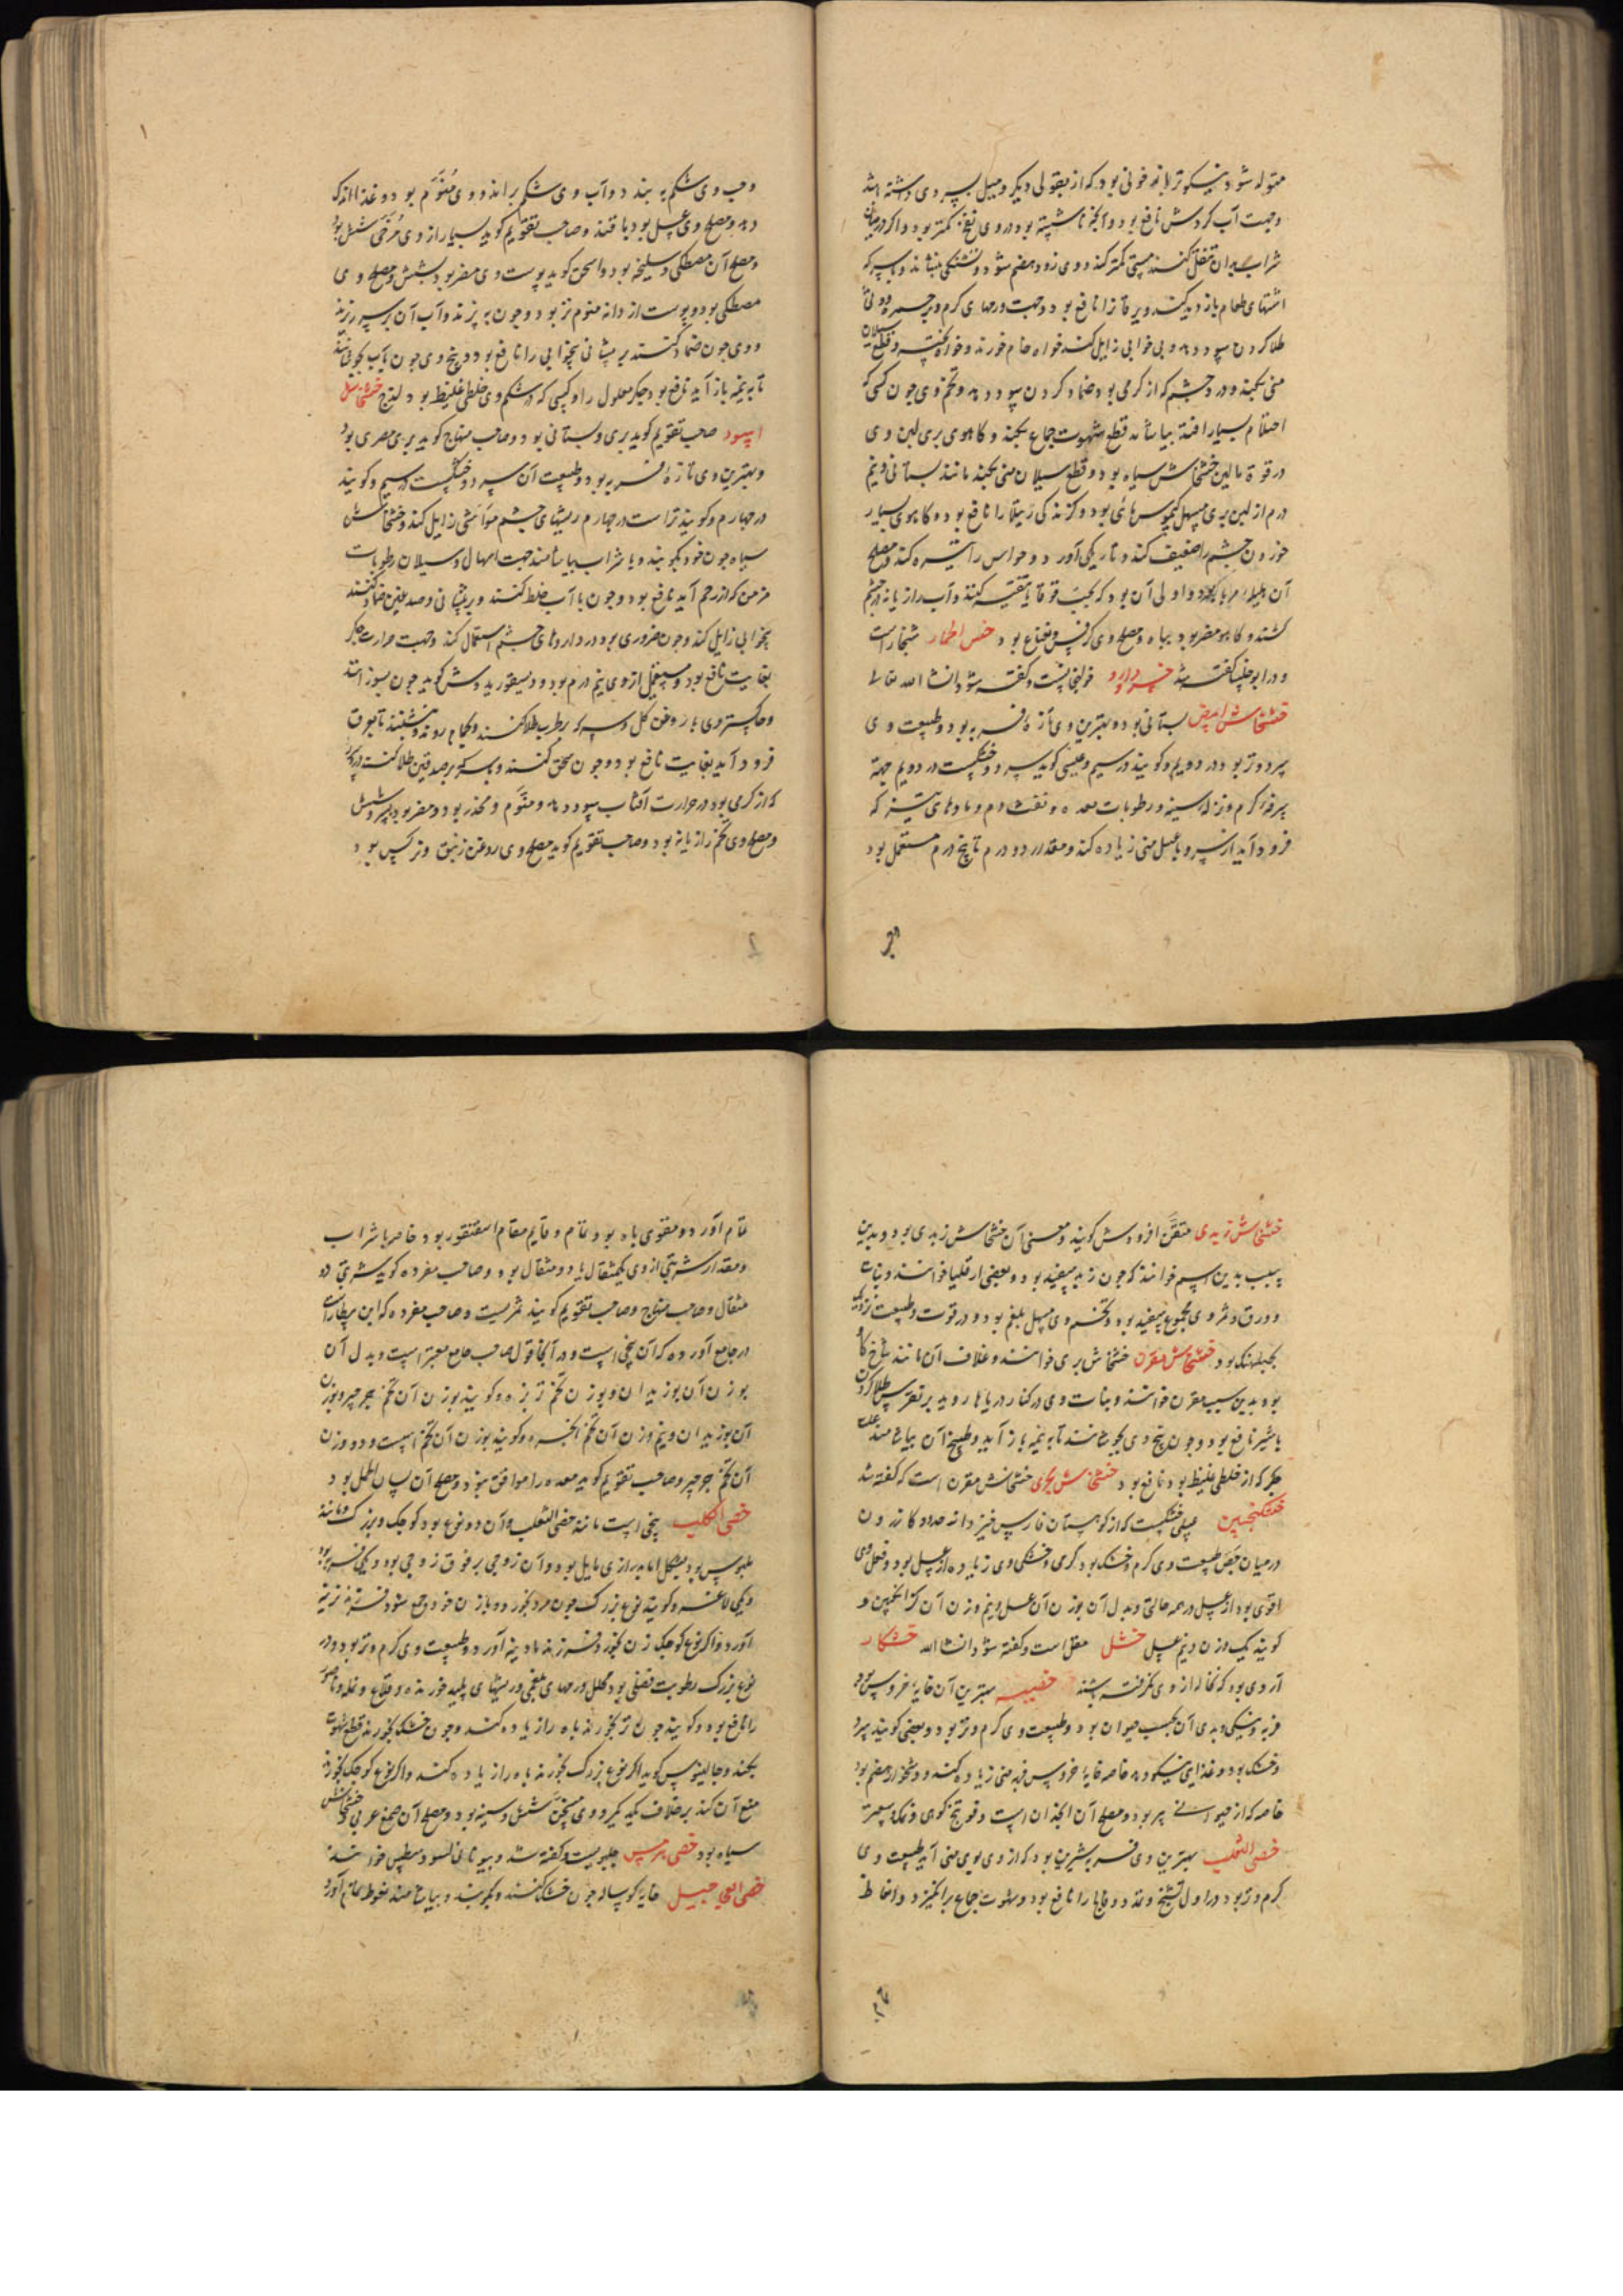 متولد شود نیکوتر بانه خونی بود که از بقولی دیگر و مبیل بسردی داشته باشد
وجهت آب گردش نافع بود و آنچه ناشسته بود در وی نفخ کمتر بود و اگر در میان
شراب بدان تنقل کنند مستی کمتر کند و وی زود هضم شود و تشنگی بنشاند و با سرکه
اشتهای طعام باز دید کند ویرقانرا نافع بود وجهت ورمهای گرم و
طلا کردن سود دهد و بی خوابی زایل کند خواه خام خورند و خواه پخته و قطع سیلان
منی بکند و درد چشم که از گرمی بود ضماد کردن سود دهد و تخم وی چون کسی که
احتلام بسیار افتد بیاشامد قطع شهوت جماع بکند و کاهوی بری لبن وی
در قوة مانند لبن خشخاش سیاه بود و قطع سیلان منی بکند مانند بستانی و نیم
درم از لبن بری مسهل کیموس مائی بود و گزندگی رتیلا را نافع بود و کاهوی بسیار
خوردن چشم را ضعیف کند و تاریکی آورد و حواس را تیره کند و مصلح
آن هلیله مربا بود و اولی آن بود که بحب قوقایا تنقیه کنند و آب رازیانه در چشم
کشند و کاهو مضر بود بباه و مصلح وی کرفس و نعناع بود خس الحمار شنجار است
و در ابوخلسا گفته شد خسرودارو خولنجانست و گفته شود انشا الله تعالی
خشخاش ابیض بستانی بود و بهترین وی تازه فربه بود و طبیعت وی
سرد و تر بود در دویم و گویند در سیم و عیسی گوید سرد و خشکست در دویم جهة
سرفه گرم و نزله و سینه و رطوبات معده و نفث دم و مادهای تیز که
فرود آید از سر و با عسل منی زیاده کند و مقدار دو درم تا پنج درم مستعمل بود
وحب وی شکم به بندد و آب وی شکم براند و وی منوم بود و غذا اندک
دهد و مصلح وی عسل بود یا قند و صاحب تقویم گوید بسیار از وی مرخی شش بود
و مصلح آن مصطکی و سلیخه بود و اسحق گوید پوست وی مضر بود بشش و مصلح وی
مصطکی بود و پوست از دانه منوم تر بود و چون به پزند و آب آن بر سر ریزند
و وی چون ضماد کنند بر پیشانی بیخوابی را نافع بود و بیخ وی چون بآب بجوشانند
تا بنیمه باز آید نافع بود جگر معلول را و کسی که در شکم وی خلطی غلیظ بود لزج خشخاش
اسود صاحب تقویم گوید بری و بستانی بود و صاحب منهاج گوید بری مصری بود
و بهترین وی تازه فربه بود و طبیعت آن سرد و خشکست در سیم و گویند
در چهارم و گویند تر است در چهارم ریشهای چشم مواشی زایل کند و خشخاش
سیاه چون خرد بکوبند و با شراب بیاشامند جهت اسهال و سیلان رطوبات
مزمن که از رحم آید نافع بود و چون با آب خلط کنند و بر پیشانی و صدغین ضماد کنند
بیخوابی زایل کند و چون ضروری بود در داروهای چشم استعمال کند وجهت حرارت جگر
بغایت نافع بود و مستعمل از وی نیم درم بود و دیسقوریدوس گوید چون بسوزانند
و خاکستر وی با روغن گل و سرکه بر سر طلا کنند و بحمام روند و بنشینند تا عرق
فرود آید بغایت نافع بود و چون سحق کنند و با سرکه بر صدغین طلا کنند
که از گرمی بود در حرارت آفتاب سود دهد و منوم و مخدر بود و مضر بود بسر و شش
و مصلح وی تخم رازیانه بود و صاحب تقویم گوید مصلح وی روغن زنبق و نرگس بود
خشخاش زبدی متقن افرودس گویند و معنی آن خشخاش زبدی بود و بدین
سبب بدین اسم خوانند که چون زبد سفید بود و بعضی ارقلیا خوانند و نبات
و ورق و ثمر وی مجموع سفید بود و تخم وی مسهل بلغم بود و در قوت و طبیعت نزدیک
بجبلهنک بود خشخاش مقرن خشخاش بری خوانند و غلاف آن مانند شاخ گاو
بود بدین سبب مقرن خوانند و نبات وی در کنار دریاها روید بر نقرس طلا کردن
با شیر نافع بود و چون بیخ وی بجوشانند تا بنیمه باز آید و طبیخ آن بیاشامند علت
جگر که از خلطی غلیظ بود نافع بود خشخاش بحری خشخاش مقرن است که گفته شد
خشکنجبین عسلی خشکست که از کوهستان فارس خیزد از حدود کازرون
در میان جص طبیعت وی گرم و خشک بود گرمی و خشکی وی زیاده از عسل بود و فعل وی
اقوی بود از عسل در همه حالتی و بدل آن بوزن آن عسل و نیم وزن آن گزانگبین و
گویند یک وزن و نیم عسل خشل مقل است و گفته شود انشا الله خشکار
آردی بود که نخاله از وی نگرفته باشند خصیه بهترین آن خایه خروس بود
فربه و نیکی و بدی آن بحسب حیوان بود و طبیعت وی گرم و تر بود و بعضی گویند سرد
و خشک بود و غذای نیکو دهد خاصه خایه خروس فربه منی زیاده کند و دشخوار هضم بود
خاصه که از حیوانی پیر بود و مصلح آن انجدان است و فوتنج کوهی و نمک و سعتر
خصی الثعلب بهترین وی فربه شیرین بود که از وی بوی منی آید طبیعت وی
گرم و تر بود در اول تشنج و تمدد و فالج را نافع بود و شهوت جماع برانگیزد و انعاظ
تمام آورد و مقوی باه بود تمام و قایم مقام اسقنقور بود خاصه با شراب
و مقدار شربتی از وی یکمثقال یا دو مثقال بود و صاحب مفرده گوید شربتی دو
مثقال و صاحب منهاج و صاحب تقویم گویند ثمریست و صاحب مفرده که ابن بیطار است
در جامع آورده که آن بیخی است و در آنجا قول صاحب جامع معتبر است و بدل آن
بوزن آن بوزیدان و بوزن تخم تربزه و گویند بوزن آن تخم جرجیر و بوزن
آن بوزیدان و نیم وزن آن تخم انجره و گویند بوزن آن تخم اسپست و دو وزن
آن تخم جرجیر و صاحب تقویم گوید معده را موافق نبود و مصلح آن لسان الحمل بود
خصی الکلب بیخی است مانند خصی الثعلب و آن دو نوع بود کوچک و بزرگ و مانند
بلبوس بود بشکل اما بدرازی مایل بود و آن زوجی بر فوق زوجی بود و یکی فربه بود
و یکی لاغر و گویند نوع بزرگ چون مرد بخورد و با زن خود جمع شود فرزند نرینه
آورد و اگر نوع کوچک زن بخورد فرزند مادینه آورد و طبیعت وی گرم و تر بود و در
نوع بزرگ رطوبت فضلی بود محلل ورمهای بلغمی و ریشهای پلید خورنده و قلاع و نمله و ناصور
را نافع بود و گویند چون تر بخورند باه را زیاده کند و چون خشک بخورند قطع شهوت
بکند و جالینوس گوید اگر نوع بزرگ بخورند باه را زیاده کند و اگر نوع کوچک بخورند
منع آن کند بر خلاف یکدیگر و وی مسخن شش و سینه بود و مصلح آن صمغ عربی و خشخاش
سیاه بود خصی هرمس حلبوبست و گفته شد و بیونانی لسود سطیس خوانند
خصی العجاجیل خایه گوساله چون خشک کنند و بکوبند و بیاشامند نعوظ تمام آورد